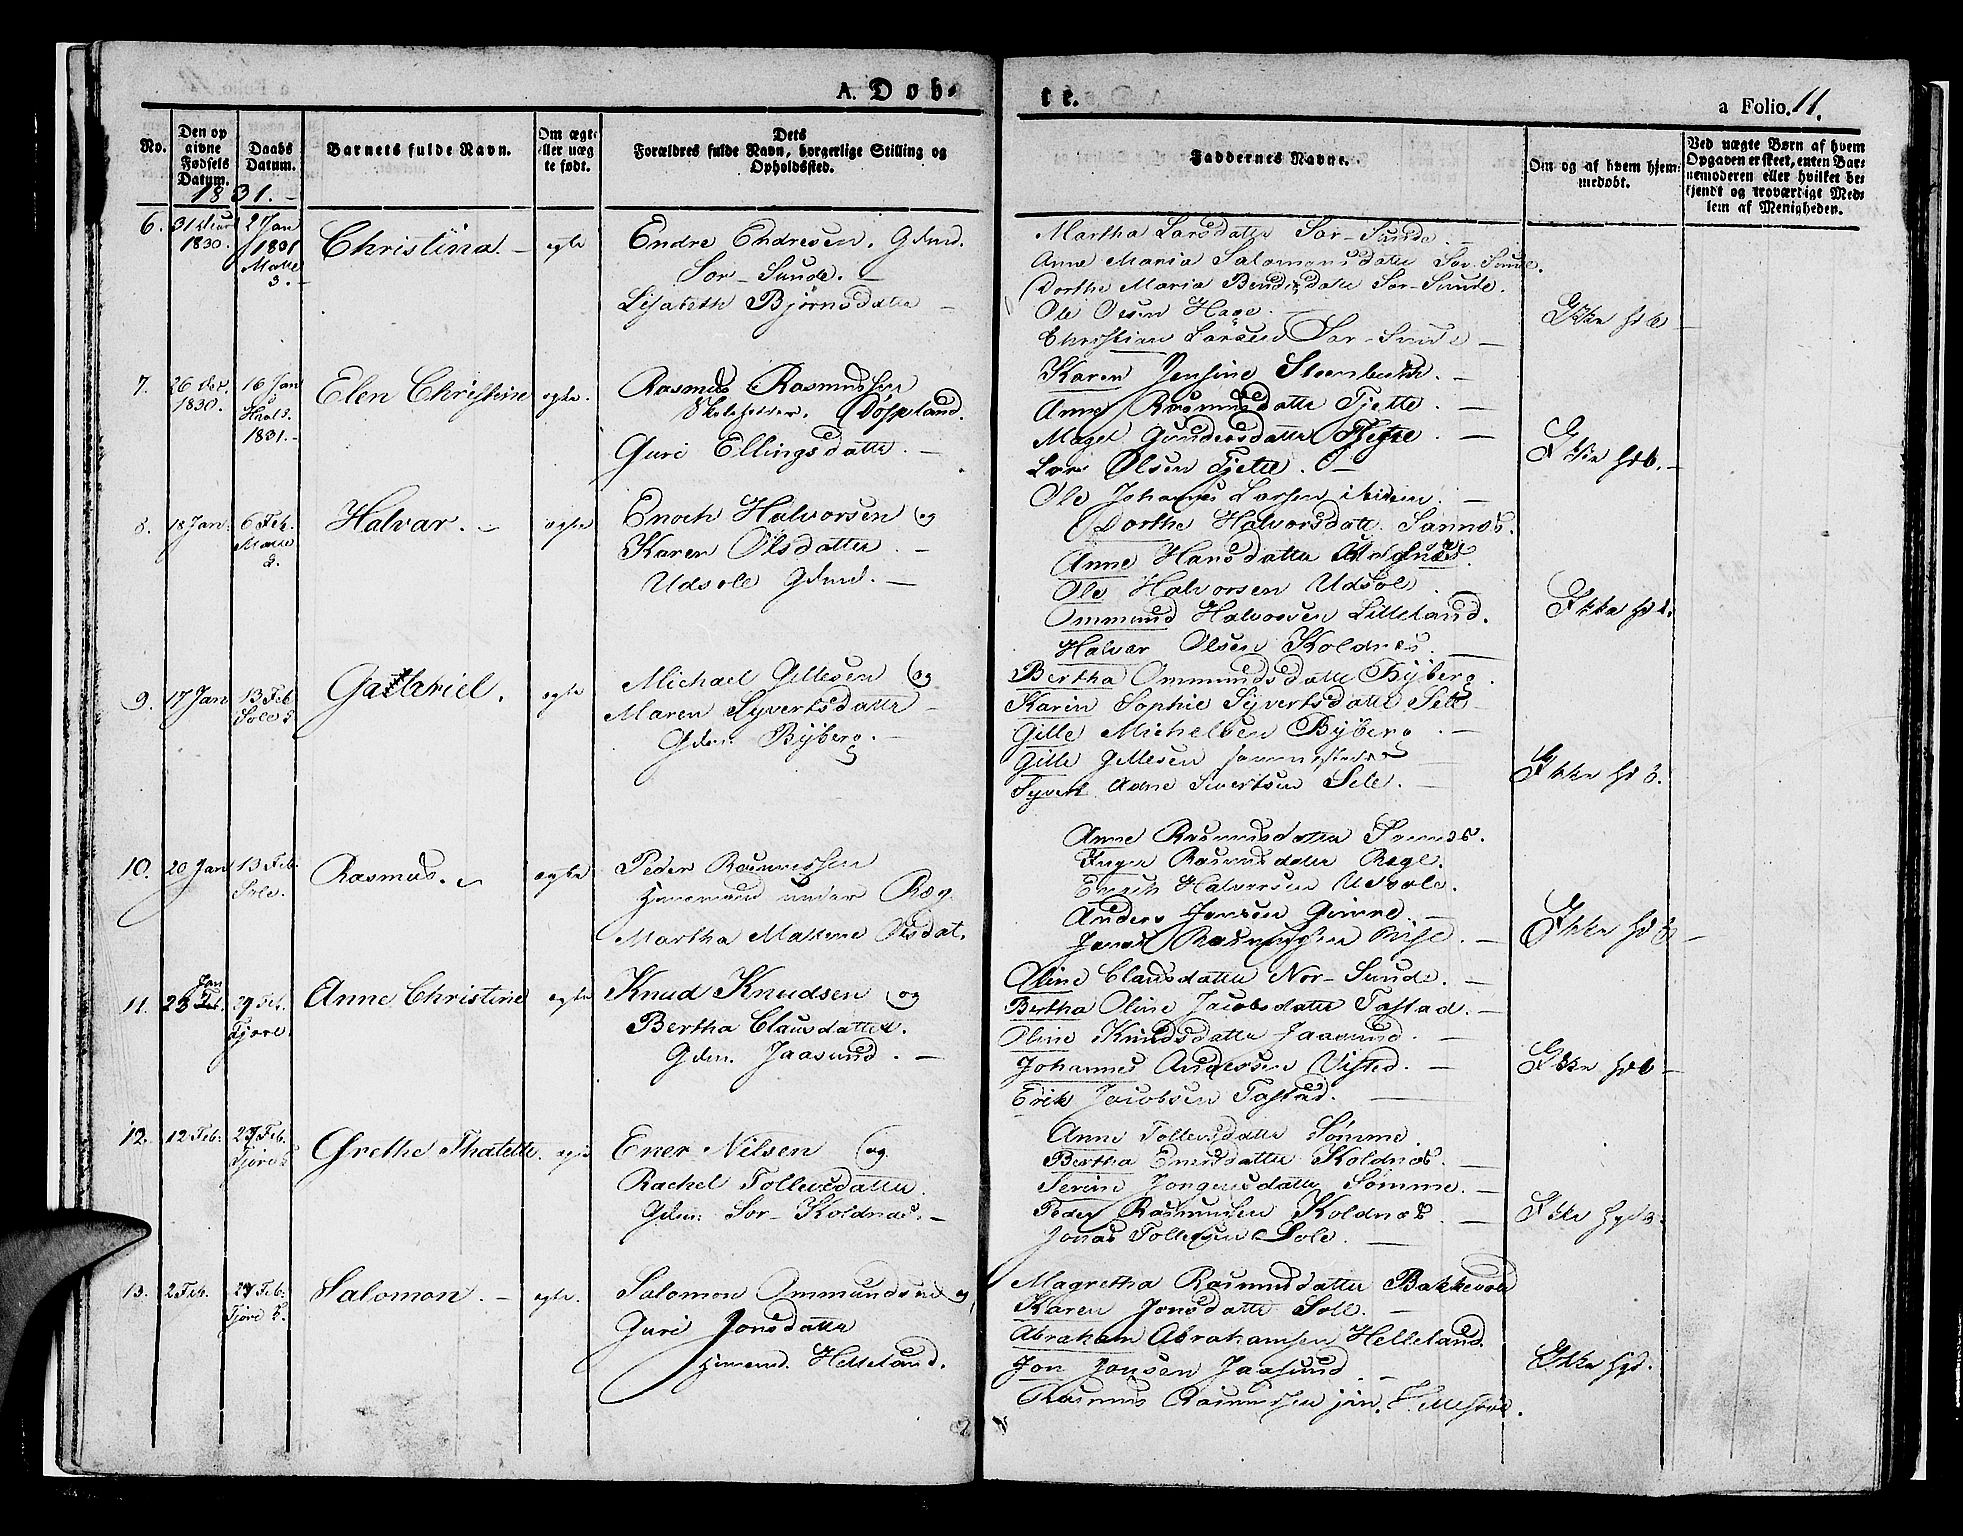 A. Døb-
te.
a Folio. 11.
No.
Den op
givne
Fødsels
Datum.
Daabs
Datum.
Barnets fulde Navn.
Om ægte
eller uæg
te født.
Dets
Forældres fulde Navn, borgerlige Stilling og
Opholdssted.
Faddernes Navne.
Om og af hvem hjem-
medøbt.
Ved uægte Børn af hvem
Opgaven er skeet, enten Bar-
nemoderen eller hvilket be-
kjendt og troværdigt Med-
lem af Menigheden.
1831.-
6.
1830.
2 Jan
1831
Christina. -
egte
Endre Endresen. Gdmd.
Sør-Sunde. -
Lisabeth Bjørnsdatter -
Martha Larsdatter Sør-Sunde. -
Anne Maria Salomonsdatter Sør-Sunde.
Dorthe Maria Sør-Sunde.
Ole Olsen Hage. -
Christian Larsen Sør-Sunde -
Ikke
7.
26 Dec.
1830.
16 Jan
1831.-
Elen Christine
egte.
Rasmus Rasmussen
Skoleholder.
Guri Ellingsdatter. -
Karen Jensine
Anne Rasmusdatter Tjelte. -
Gundersdatter Tjelte. -
Lars Olsen Tjelte. -
Ole Johannes Larsen ibidem. -
Ikke
8.
18 Jan.
6 Feb.
Halvar. -
egte
Enoch Halvorsen og
Karen Olsdatter. -
Udsole Gdmd. -
Dorthe Halvorsdatt. Sannes.
Anne Hansdatter
Ole Halvorsen Udsole.
Ommund Halvorsen Litleland.
Halvar Olsen Koldnes. -
Ikke
9.
17 Jan
13 Feb
Sole
Gabriel.
egte
Michael Gillesen og
Maren Syvertsdatter -
Gdm. Byberg. -
Bertha Ommundsdatter Byberg.
Karin Sophie Syvertsdatter Sele
Gille Michelsen Byberg. -
Gille Gillesen sammesteds -
Syvert Arne Sivertsen Sele. -
Ikke
10.
20 Jan
13 Feb.
Sole.
Rasmus. -
egte
Peder Rasmussen
Huusmand under Ræg.
Martha Malene Olsdat.
Anne Rasmusdatter Sannes.
Inger Rasmusdatter Rege.
Enoch Halvorsen Udsole.
Anders Jansen Gimre. -
Jonas Rasmussen Rege. -
Ikke
11.
Jan
23 Feb.
27 Feb.
Tjore.
Anne Christine
egte
Knud Knudsen og
Bertha Clausdatter.
Gdm. Jaasund. -
Oline Clausdatter Nor-Sunde. -
Bertha Oline Jacobsdatter Tastad. -
Oline Knudsdatter Jaasund. -
Johannes Andersen Visted. -
Erik Jacobsen Tastad. -
Ikke
12.
12 Feb.
27 Feb.
Grethe Thalette.
egte
Ener Nilsen og
Rachel Tollevsdatter.
Gdm. Sør-Koldnæs. -
Anne Tollevsdatter Sømme.
Bertha Enersdatter Koldnæs. -
Serine Jorgensdatter Sømme. -
Peder Rasmussen Koldnæs. -
Jonas Tollevsen Sole. -
Ikke
13.
2 Feb.
27 Feb.
Salomon. -
egte.
Salomon Ommundsen og
Guri Jonsdatter
Huusmd. Helleland.
Magretha Rasmusdatter Bakkevold
Karen Jonsdatter Sole. -
Abraham Abrahamsen Helleland.
Jon Jonsen Jaasund. -
Rasmus Rasmussen jun.
Ikke